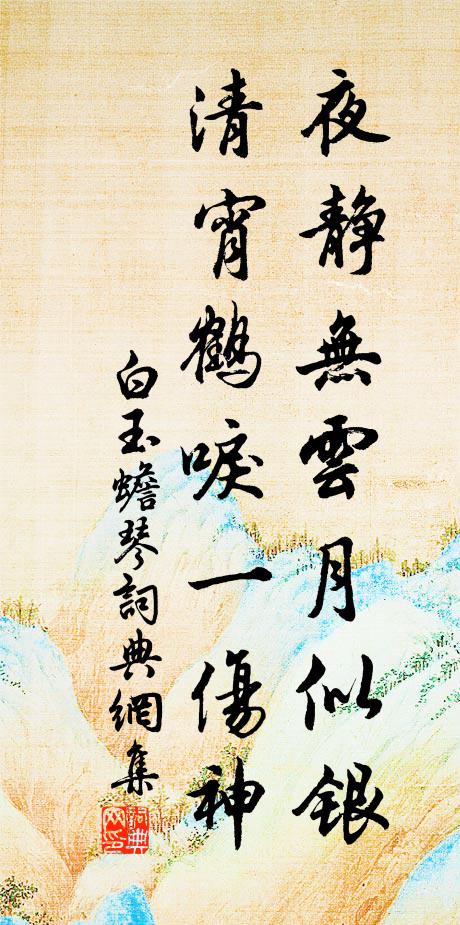 夜静無雲月似银
清宵鶴唳一傷神
白玉蟾琴詞典網集
詞典
网印